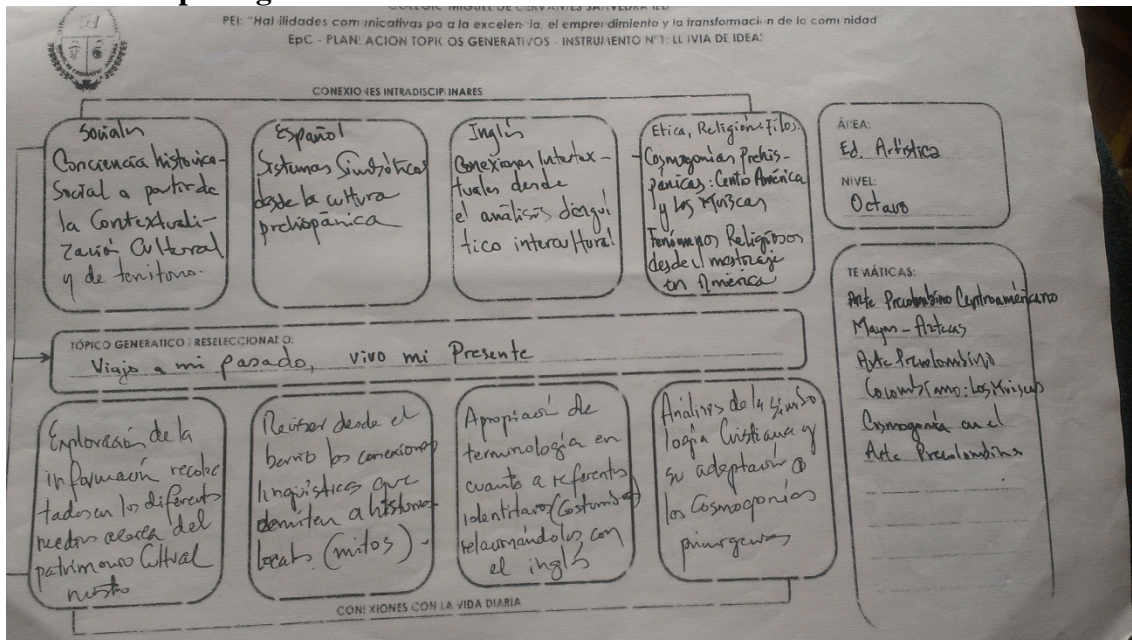 COLEGIO MIGUEL DE CERVANTES SAAVEDRA IED
PEI: "Habilidades comunicativas para la excelencia, el emprendimiento y la transformación de la comunidad"
EpC - PLANEACION TOPICOS GENERATIVOS - INSTRUMENTO N°1: LLUVIA DE IDEAS
CONEXIONES INTRADISCIPLINARES
Sociales
Conciencia histórico-
Social a partir de
la Contextuali-
zación Cultural
y de territorio.
Español
Sistemas Simbólicos
desde la cultura
prehispánica
Inglés
Conexiones Intertex-
tuales desde
el análisis lingüí
tico intercultural
Etica, Religión y Filos.
- Cosmogonías Prehis-
pánicas: Centro América
y los Muiscas
Fenómenos Religiosos
desde el mestizaje
en América
ÁREA:
Ed. Artística
NIVEL:
Octavo
TEMÁTICAS:
Arte Precolombino Centroaméricano
Mayas - Aztecas
Arte Precolombino
Colombiano: Los Muiscas
Cosmogonía en el
Arte Precolombino
TÓPICO GENERATIVO PRESELECCIONADO:
Viajo a mi pasado, vivo mi Presente
Exploración de la
información recolec
tada en los diferentes
medios acerca del
patrimonio Cultural
nuestro
Revisar desde el
barrio las conexiones
lingüísticas que
remiten a historias
locales (mitos) -
Apropiación de
terminología en
cuanto a referentes
identitarios (Costumbres)
relacionándolos con
el inglés
Análisis de la simbo
logía Cristiana y
su adaptación a
las Cosmogonías
primigenias
CONEXIONES CON LA VIDA DIARIA